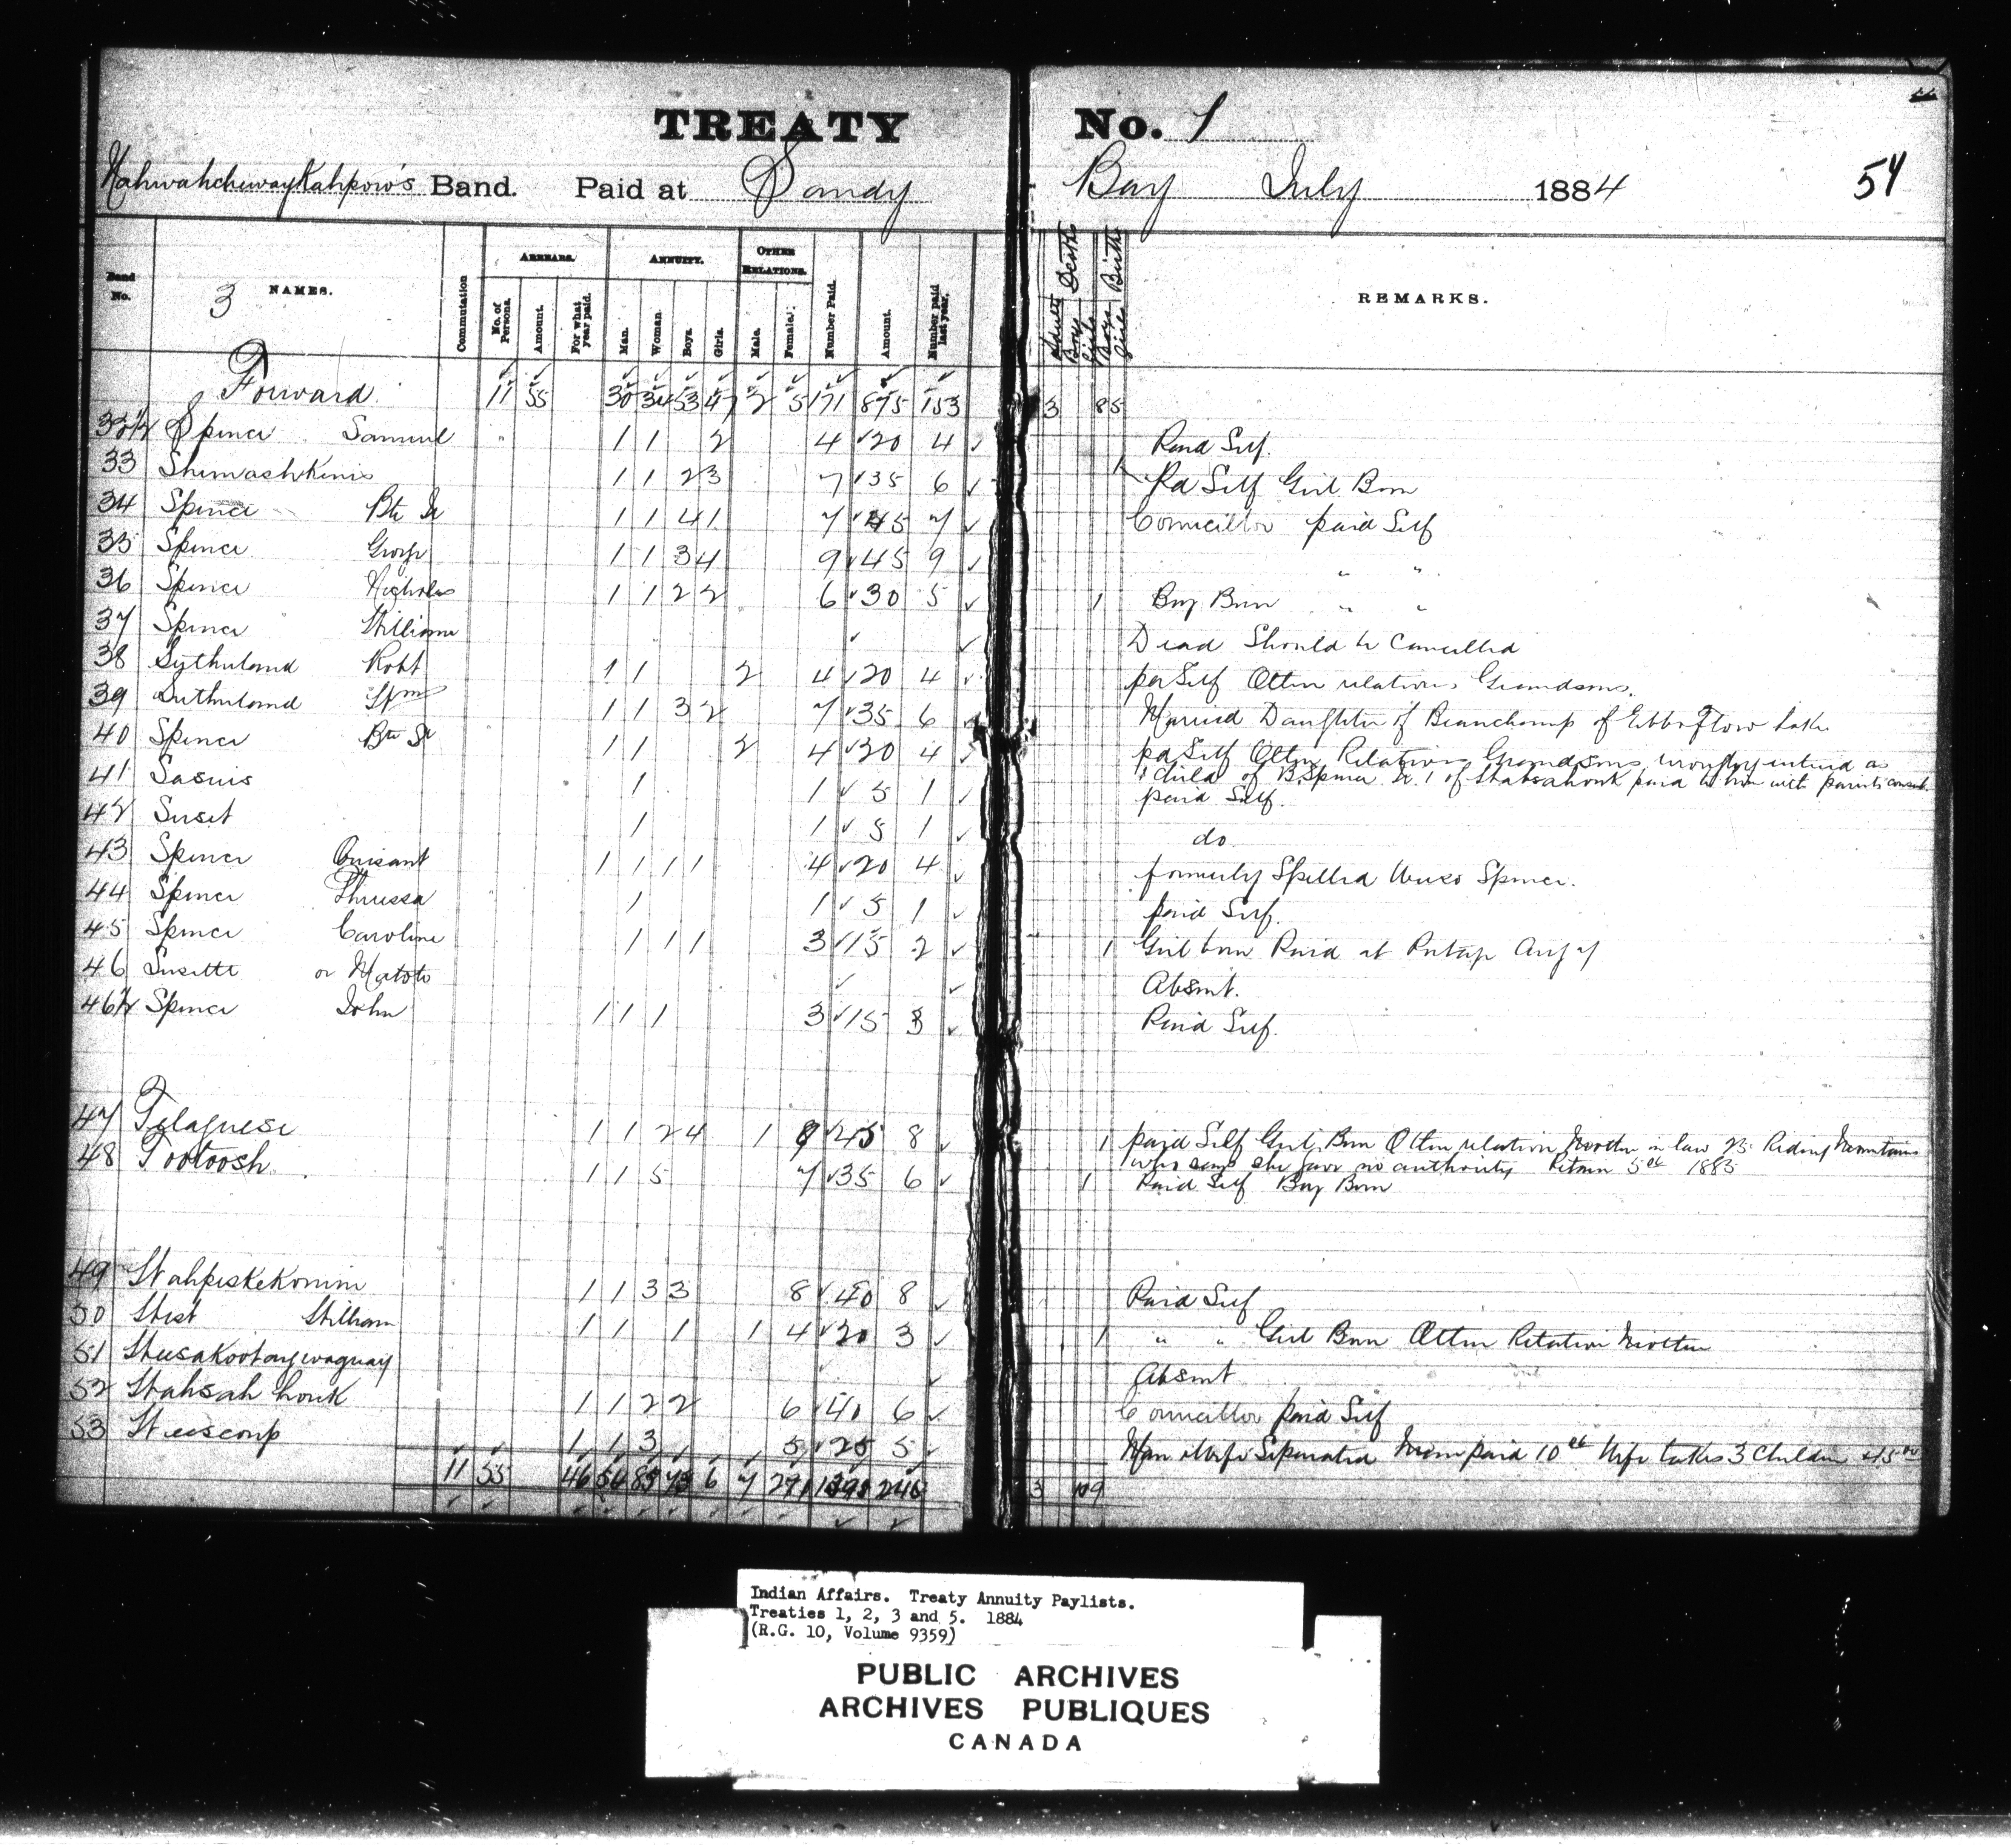 TREATY No. 1
54
Band. Paid at Sandy Bay July 1884
Band No.
3 NAMES.
Commutation
ARREARS.
No. of Persons.
Amount.
For what year paid.
ANNUITY.
Man.
Woman.
Boys.
Girls.
OTHER RELATIONS.
Male.
Female.
Number Paid.
Amount.
Number paid last year.
Adults Boys Girls Deaths
Boys Girls Births
REMARKS.
Forward 11 55 30 34 53 47 2 5 171 875 153 3 8 5
32 1/2 Spence Samuel 1 1 2 4 20 4 Paid Self.
33 Shemashkinis 1 1 2 3 7 35 6 1 Pd Self Girl Born
34 Spence Bte Jr 1 1 4 1 7 45 7 Councillor paid Self
35 Spence George 1 1 3 4 9 45 9 " "
36 Spence Nicholas 1 1 2 2 6 30 5 1 Boy Born " "
37 Spence William Dead Should be Cancelled
38 Sutherland Robt 1 1 2 4 20 4 pd Self Other relations Grandsons.
39 Sutherland Wm 1 1 3 2 7 35 6 Married Daughter of Beauchamp of Ebb & Flow Lake
40 Spence Bte Sr 1 1 2 4 20 4 pd Self Other Relations Grandsons wrongly entered as
1 child of B Spence Jr. 1 of Wahsahouk paid to him with parents consent.
41 Sasuis 1 1 5 1 paid Self.
42 Suset 1 1 5 1 do
43 Spence 1 1 1 1 4 20 4 formerly Spelled Spence.
44 Spence Thressa 1 1 5 1 paid Self.
45 Spence Caroline 1 1 1 3 15 2 1 Girl born Paid at Portage Aug 7
46 Susette or Matoto Absent.
46 1/2 Spence John 1 1 1 3 15 3 Paid Self.
47 1 1 2 4 1 9 45 8 1 paid Self Girl Born Other relation Mother in law Riding Mountain
who says she gave no authority Retain 5 00 1885
48 Tootoosh 1 1 5 7 35 6 1 Paid Self Boy Born
49 Wahpiskekonim 1 1 3 3 8 40 8 Paid Self
50 West William 1 1 1 1 4 20 3 1 " " Girl Born Other Relation Mother
51 Absent
52 Wahsah houk 1 1 2 2 6 40 6 Councillor paid Self
53 Weescoup 1 1 3 5 25 5 Man & Wife Separated Man paid 10 00 Wife takes 3 Children & 15 00
11 55 46 54 83 73 6 7 271 246 3 10 9
Indian Affairs. Treaty Annuity Paylists.
Treaties 1, 2, 3 and 5. 1884
(R.G. 10, Volume 9359)
PUBLIC ARCHIVES
ARCHIVES PUBLIQUES
CANADA